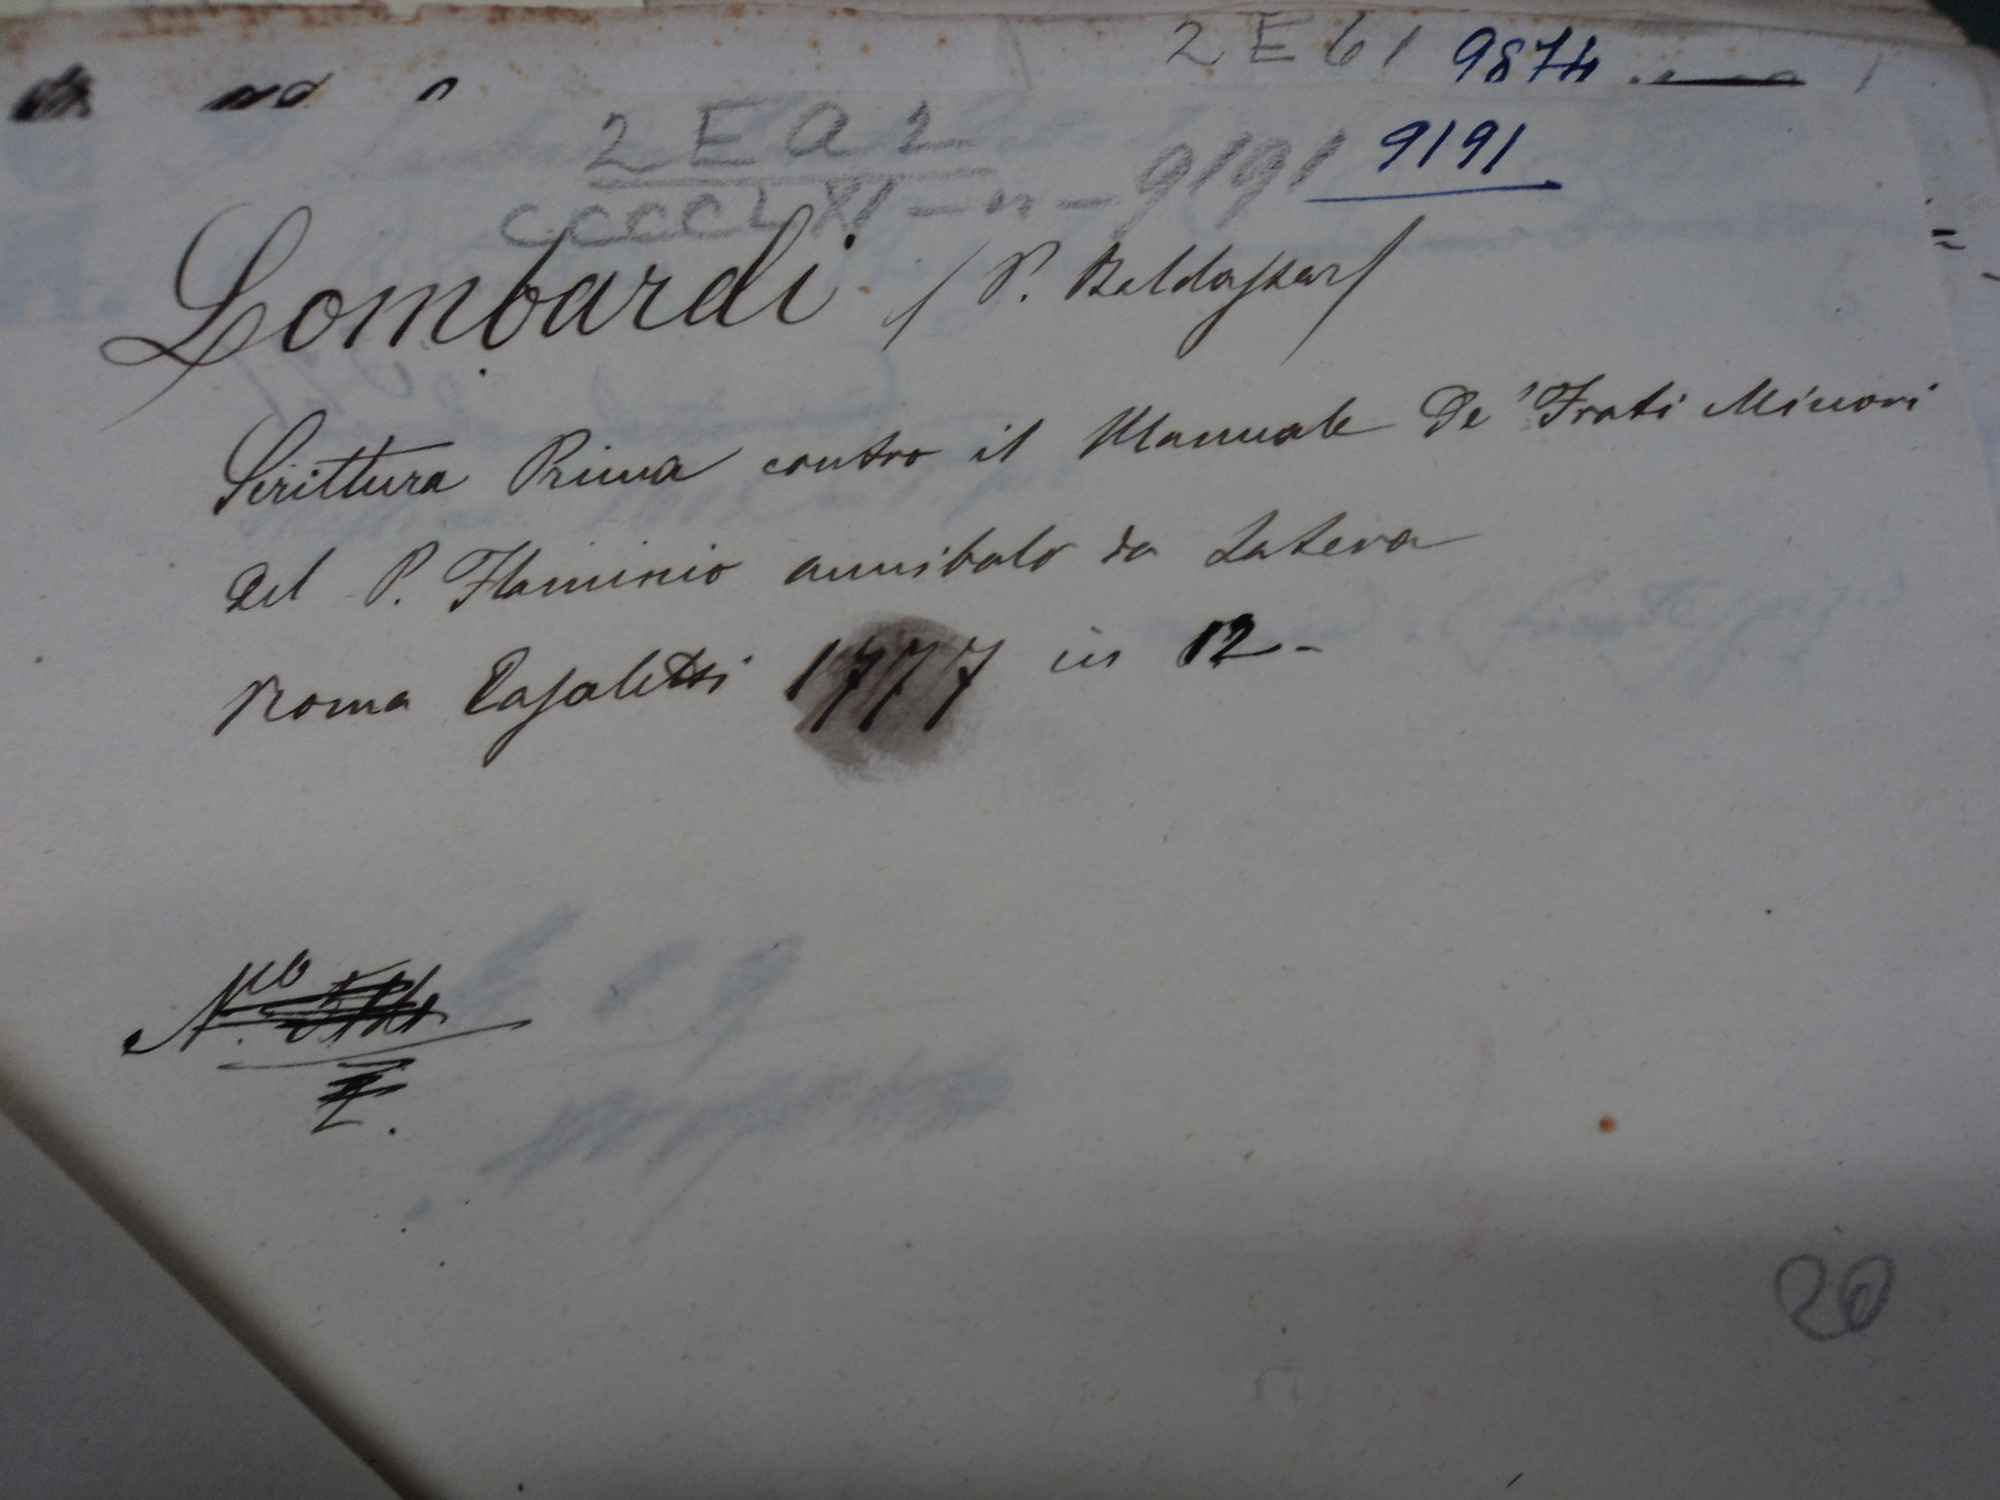 2 E 61 9874
2 E a 2
CCCCLXI - n - 9191 9191
Lombardi / P. Baldassar /
Scrittura Prima contro il Manuale De' Frati Minori
del P. Flaminio annibale da Latera
Roma Casaletti 1777 in 12 -
20